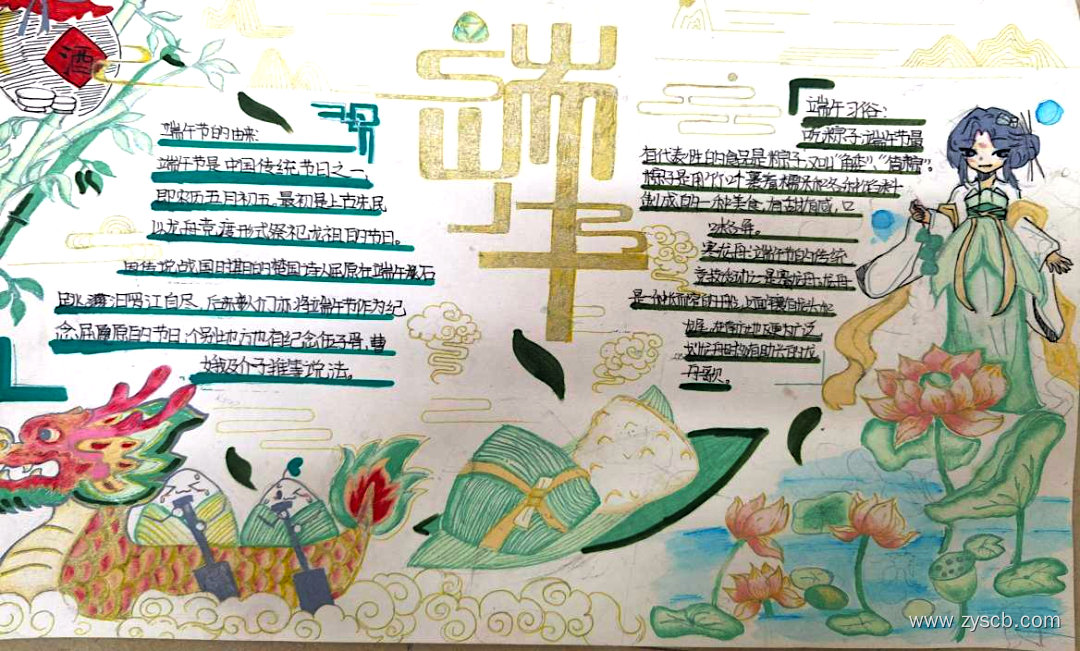 酒
端午
端午节的由来:
端午节是中国传统节日之一,
即农历五月初五。最初是上古先民
以龙舟竞渡形式祭祀龙祖的节日。
因传说战国时期的楚国诗人屈原在端午
汨罗江自尽,后来人们亦将端午节作为纪
念屈原的节日,个别地方也有纪念伍子胥,曹
娥及介子推等说法。
端午习俗:
吃粽子:端午节最
有代表性的食品是粽子,又叫"角黍"、"筒粽"。
粽子是用
做成的一种美食,有甜有咸,口
味各异。
赛龙舟:端午节的传统
竞技活动之一是赛龙舟,龙舟
是
舟歌。
www.zyscb.com